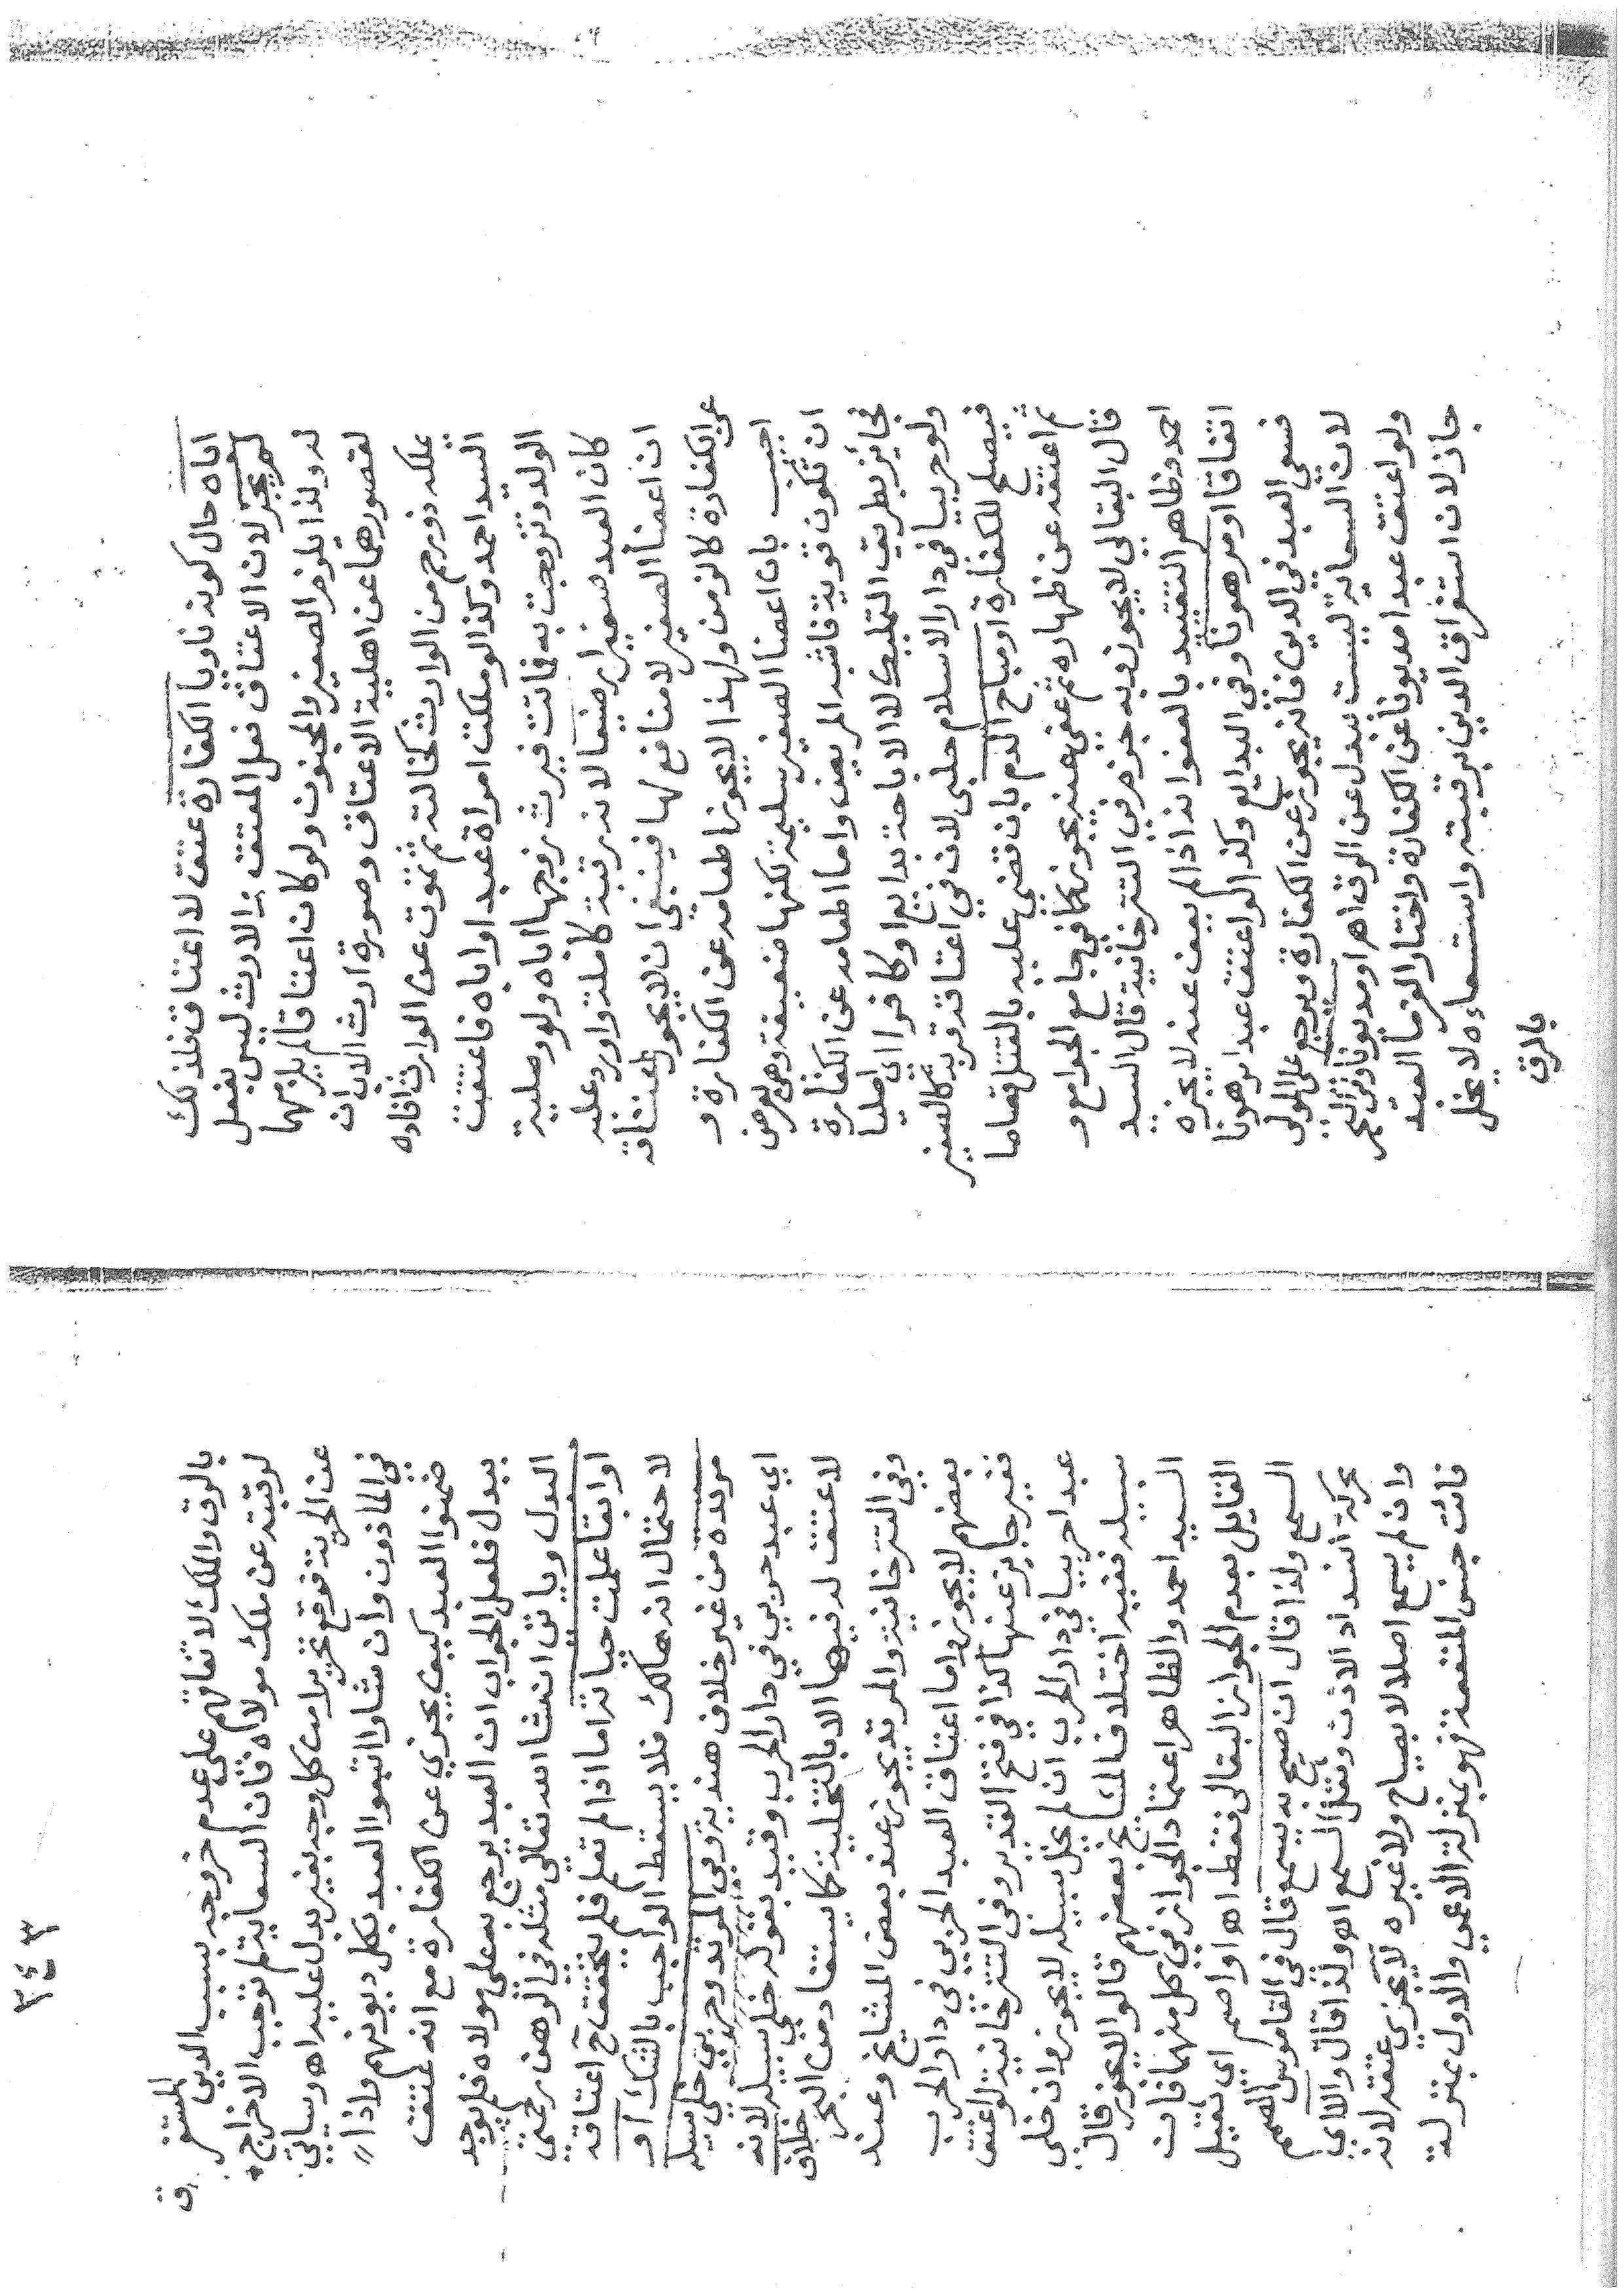 اباه حال كونه ناويا الكفارة عتق لا اعتاق فلذلك
لم يجز لان الاعتاق فعل المعتق والارث ليس بفعل
له ولذا يلزم الصغير والمجنون ولو كان اعتاقا لم يلزمهما
لقصورهما عن اهلية الاعتاق وصورة ارث الاب ان
يملكه ذو رحم من الوارث كخالته ثم تموت عن الوارث افاده
السيد احمد وكذا لو ملكت امراة عبدا واباه فاعتقت
الولد وتزوجت به فماتت فيرث زوجها اباه ولو وصلية
كان العبد صغيرا رضيعا لانه رقبة كاملة واورد عليه
ان اعضأ الصغير لا منافع لها فينبغي ان لا يجوز اعتاقه
عن الكفارة كالزمن ولهذا لا يجوز اطعامه عن الكفارة و
اجيب بان اعضأ الصغير سليمة لكنها ضعيفة وهي بعرض
ان تكون قوية فاشبه المريض واما اطعامه عن الكفارة
فجائز بطريق التمليك لا الاباحة بدايع او كافرا اي اصليا
ولو حربيا في دار الاسلام حلبي لان في اعتاقه قربة
فيصلح للكفارة او مباح الدم بان قضي عليه بالقتل قصاصا
ثم اعتقه عن ظهاره ثم عفي عنه يجوز كما في جامع الجوامع و
قال البقالي لا يجوز وبه جزم في التترخانية قال السيد
احمد وظاهر التقييد بالعفو انه اذا لم يعف عنه لا يجزه
اتفاقا او مرهونا وفي البدايع وكذا لو اعتق عبدا مرهونا
فسعى العبد في الدين فانه يجوز عن الكفارة ويرجع على المولى
لان السعاية ليست ببدل عن الرق اهـ او مديونا وفي البحر
ولو اعتق عبدا مديونا عن الكفارة واختار الغرما
جاز لان استغراق الدين برقبته واستسعاءه لا يخل
بالرق
٣٤٣
بالرق والملك لا تفاقهم على عدم خروجه بسبب الدين المستغرق
لرقبته عن ملك مولاه فان السعاية لم توجب الاخراج
عن الحرية فوقع تحريرا من كل وجه بغير بدل عليه اهـ وسياتي
في الماذون وان شاوا اتبعوا العبد بكل ديونهم واذا
ضمنوا العبد كيف يجزي عن الكفارة مع انه عتق
ببدل فلعل الجواب ان العبد يرجع بما على مولاه فلم يوجد
البدل وياتي انشا الله تعالى مثله في الرهن رحمتي
او ابقا علمت حياته اما اذا لم تعلم فلم يتحقق ح اعتاقه
لاحتمال انه هالك فلا يسقط الواجب بالشك او
مرتدة من غير خلاف هندية وفي المرتد وحربي خلي سبيله
اي عبد حربي في دار الحرب وقيد بقوله خلي سبيله لانه
لا عتق له فيها الا بالتخلية كما يستفاد من البحر خلاف
وفي التترخانية والمرتد يجوز عند بعض المشايخ وعند
بعضهم لا يجوز واما اعتاق العبد الحربي في دار الحرب
فغير جايز عنها كذا في فتح القدير وفي التترخانية لو اعتق
عبدا حربيا في دار الحرب ان لم يخل سبيله لا يجوز وان خلى
سبيله ففيه اختلاف المشايخ بعضهم قالوا لا يجوز قال
السيد احمد والظاهر اعتماد الجواز في كل منهما فان
القايل بعدم الجواز البقالي فقط اهـ او اصم اي ثقيل
السمع ولذا قال ان صيح به يسمع قال في القاموس الصمم
محركة انسداد الاذن وثقل السمع اهـ ولذا قال والا اي
وان لم يسمع اصلا لا بصياح ولا غيره لا يجزي عتقه لانه
فائت جنس المنفعة فهو بمنزلة الاعمى والاول بمنزلة